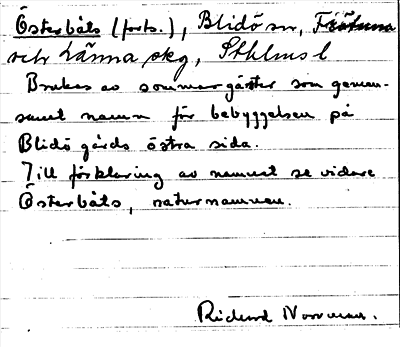 Österbåts (forts.), Blidö sn, Frötuna
och Länna skg, Sthlms l
Brukas av sommargäster som gemen-
samt namn för bebyggelsen på
Blidö gårds östra sida.
Till förklaring av namnet se vidare
Österbåts, naturnamnen.
Richard Norrman.